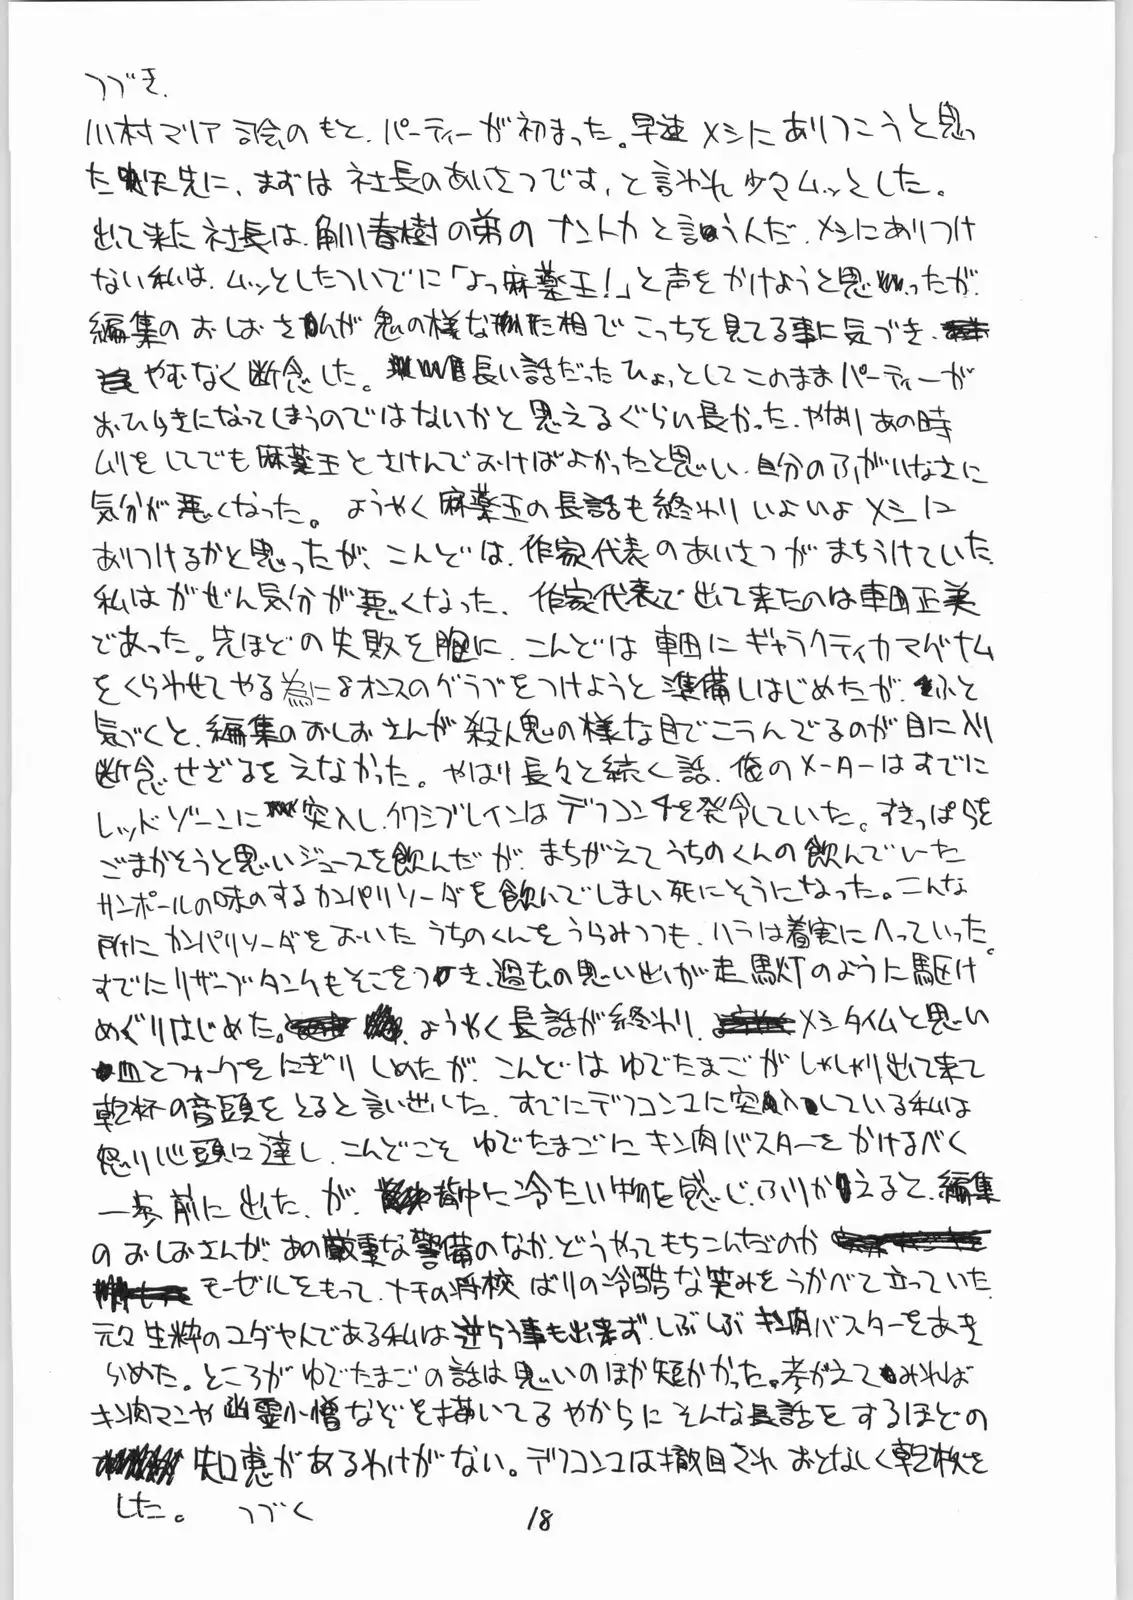 つづき.
川村マリア司会のもと、パーティーが初まった。早速メシにありつこうと思っ
た矢先に、まずは社長のあいさつです、と言われ少々ムッとした。
出て来た社長は、角川春樹の弟のナントカと言うんだ、メシにありつけ
ない私は、ムッとしたついでに「よっ麻薬王!」と声をかけようと思ったが、
編集のおしおさんが鬼の様な形相でこっちを見てる事に気づき、
やむなく断念した。長い話だったひょっとしてこのままパーティーが
おひらきになってしまうのではないかと思えるぐらい長かった、やはりあの時
ムリをしてでも麻薬王とさけんでおけばよかったと思い、自分のふがいなさに
気分が悪くなった。ようやく麻薬王の長話も終わりいよいよメシに
ありつけるかと思ったが、こんどは、作家代表のあいさつがまちうけていた
私はがぜん気分が悪くなった、作家代表で出て来たのは車田正美
であった。先ほどの失敗を胸に、こんどは車田にギャラクティカマグナム
をくらわせてやる為に8オンスのグラブをつけようと準備しはじめたが、ふと
気づくと、編集のおしおさんが殺人鬼の様な目でこうんでるのが目に入り
断念せざるをえなかった。やはり長々と続く話、俺のメーターはすでに
レッドゾーンに突入し、クワシブレインはデフコン4を発令していた。すきっぱらを
ごまかそうと思いジュースを飲んだが、まちがえてうちのくんの飲んでいた
サンポールの味のするカンパリソーダを飲んでしまい死にそうになった。こんな
所にカンパリソーダをおいたうちのくんをうらみつつも、ハラは着実にへっていった。
すでにリザーブタンクもそこをつき、過去の思い出が走馬灯のように駆け
めぐりはじめた。ようやく長話が終わり、メシタイムと思い
皿とフォークをにぎりしめたが、こんどはゆでたまごがしゃしゃり出て来て
乾杯の音頭をとると言い出した、すでにデフコン2に突入している私は
怒り心頭に達し、こんどこそゆでたまごにキン肉バスターをかけるべく
一歩前に出た、が、背中に冷たい物を感じ、ふりかえると、編集
のおしおさんが、あの厳重な警備のなか、どうやってもちこんだのか
モーゼルをもって、ナチの将校ばりの冷酷な笑みをうかべて立っていた
元々生粋のユダヤ人である私は逆らう事も出来ず、しぶしぶキン肉バスターをあき
らめた。ところがゆでたまごの話は思いのほか短かかった。考がえてみれば
キン肉マンや幽霊小僧などを描いてるやからにそんな長話をするほどの
知恵があるわけがない。デフコン2は撤回されおとなしく乾杯を
した。 つづく
18